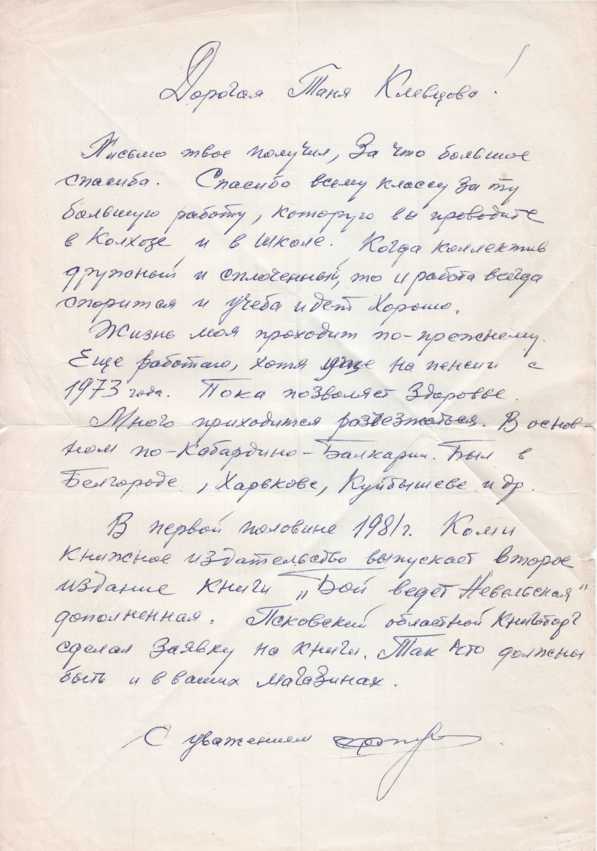 Дорогая Таня Клевцова!
Письмо твое получил, за что большое
спасиба. Спасибо всему классу за ту
большую работу, которую вы проводите
в Колхозе и в школе. Когда коллектив
дружный и сплоченный, то и работа всегда
спорится и учеба идет хорошо.
Жизнь моя проходит по-прежнему.
Еще работаю, хотя уже на пенсии с
1973 года. Пока позволяет здоровье.
Много приходится разъезжаться. В основ-
ном по-Кабардино-Балкарии. Был в
Белгороде, Харькове, Куйбышеве и др.
В первой половине 1981г. Коми
книжное издательство выпускает второе
издание книги „Бой ведет Невельская"
дополненная. Псковский областной Книготорг
сделал заявку на книги. Так что должны
быть и в ваших магазинах.
С уважением